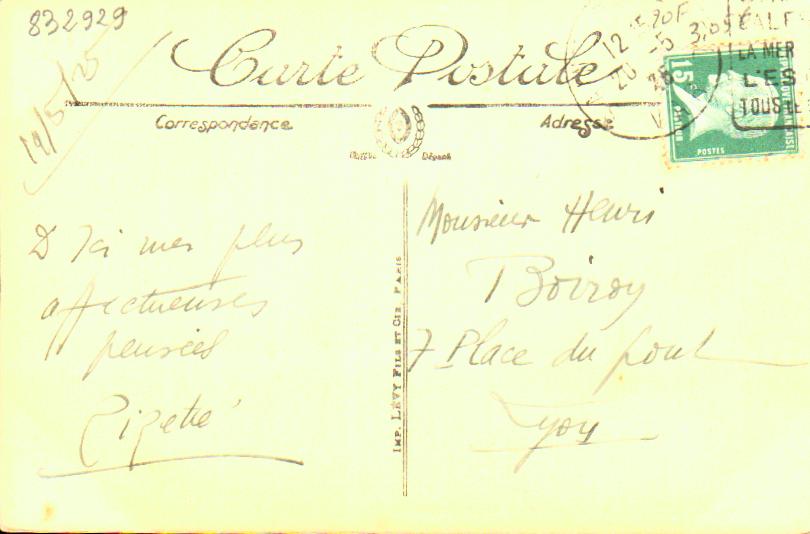 832929
Carte Postale
Correspondance
Adresse
15
POSTES
LA MER
TOUS
D'Ici mes plus
affectueuses
pensées
Zizette
IMP. LÉVY FILS ET CIE PARIS
Monsieur Henri
Boiroy
7 Place du pont
Lyon